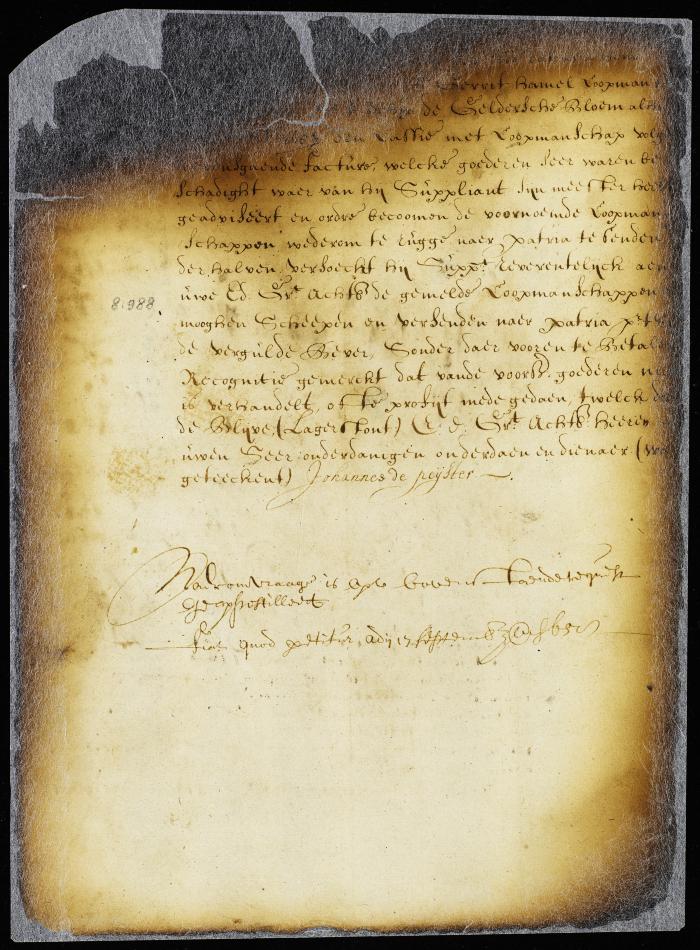 Gerrit Hamel Coopman
de Geldersche Bloem al
een Cassie met CoopmanSchap vol
facture, welcke goederen seer waren be
schadight waer van hij Suppliant sijn meester hee
geadviseert en ordre becoomen de voornoemde Coopman
schappen wederom te rugge naer patria te senden
derhalven versoeckt hij Suppt. reverentelijck aen
uwe Ed. Grt. Achtb. de gemelde Coopmanschappen
mooghen Scheepen en versenden naer patria pr. t
de vergulde Bever, Sonder daer vooren te betal
Recognitie gemerckt dat vande voorsz. goederen ni
is verhandelt, of te profijt mede gedaen, twelck do
de Blijve, (Lager stont) E. E. Grt. Achtb. Heeren
uwen Seer onderdanigen onderdaen en dienaer (w
geteeckent) Johannes de peijster
8.988
Nadr omvraage is op 't bovenstaende request
geapostilleert
fiat quod petitur, Adij 17 septemb